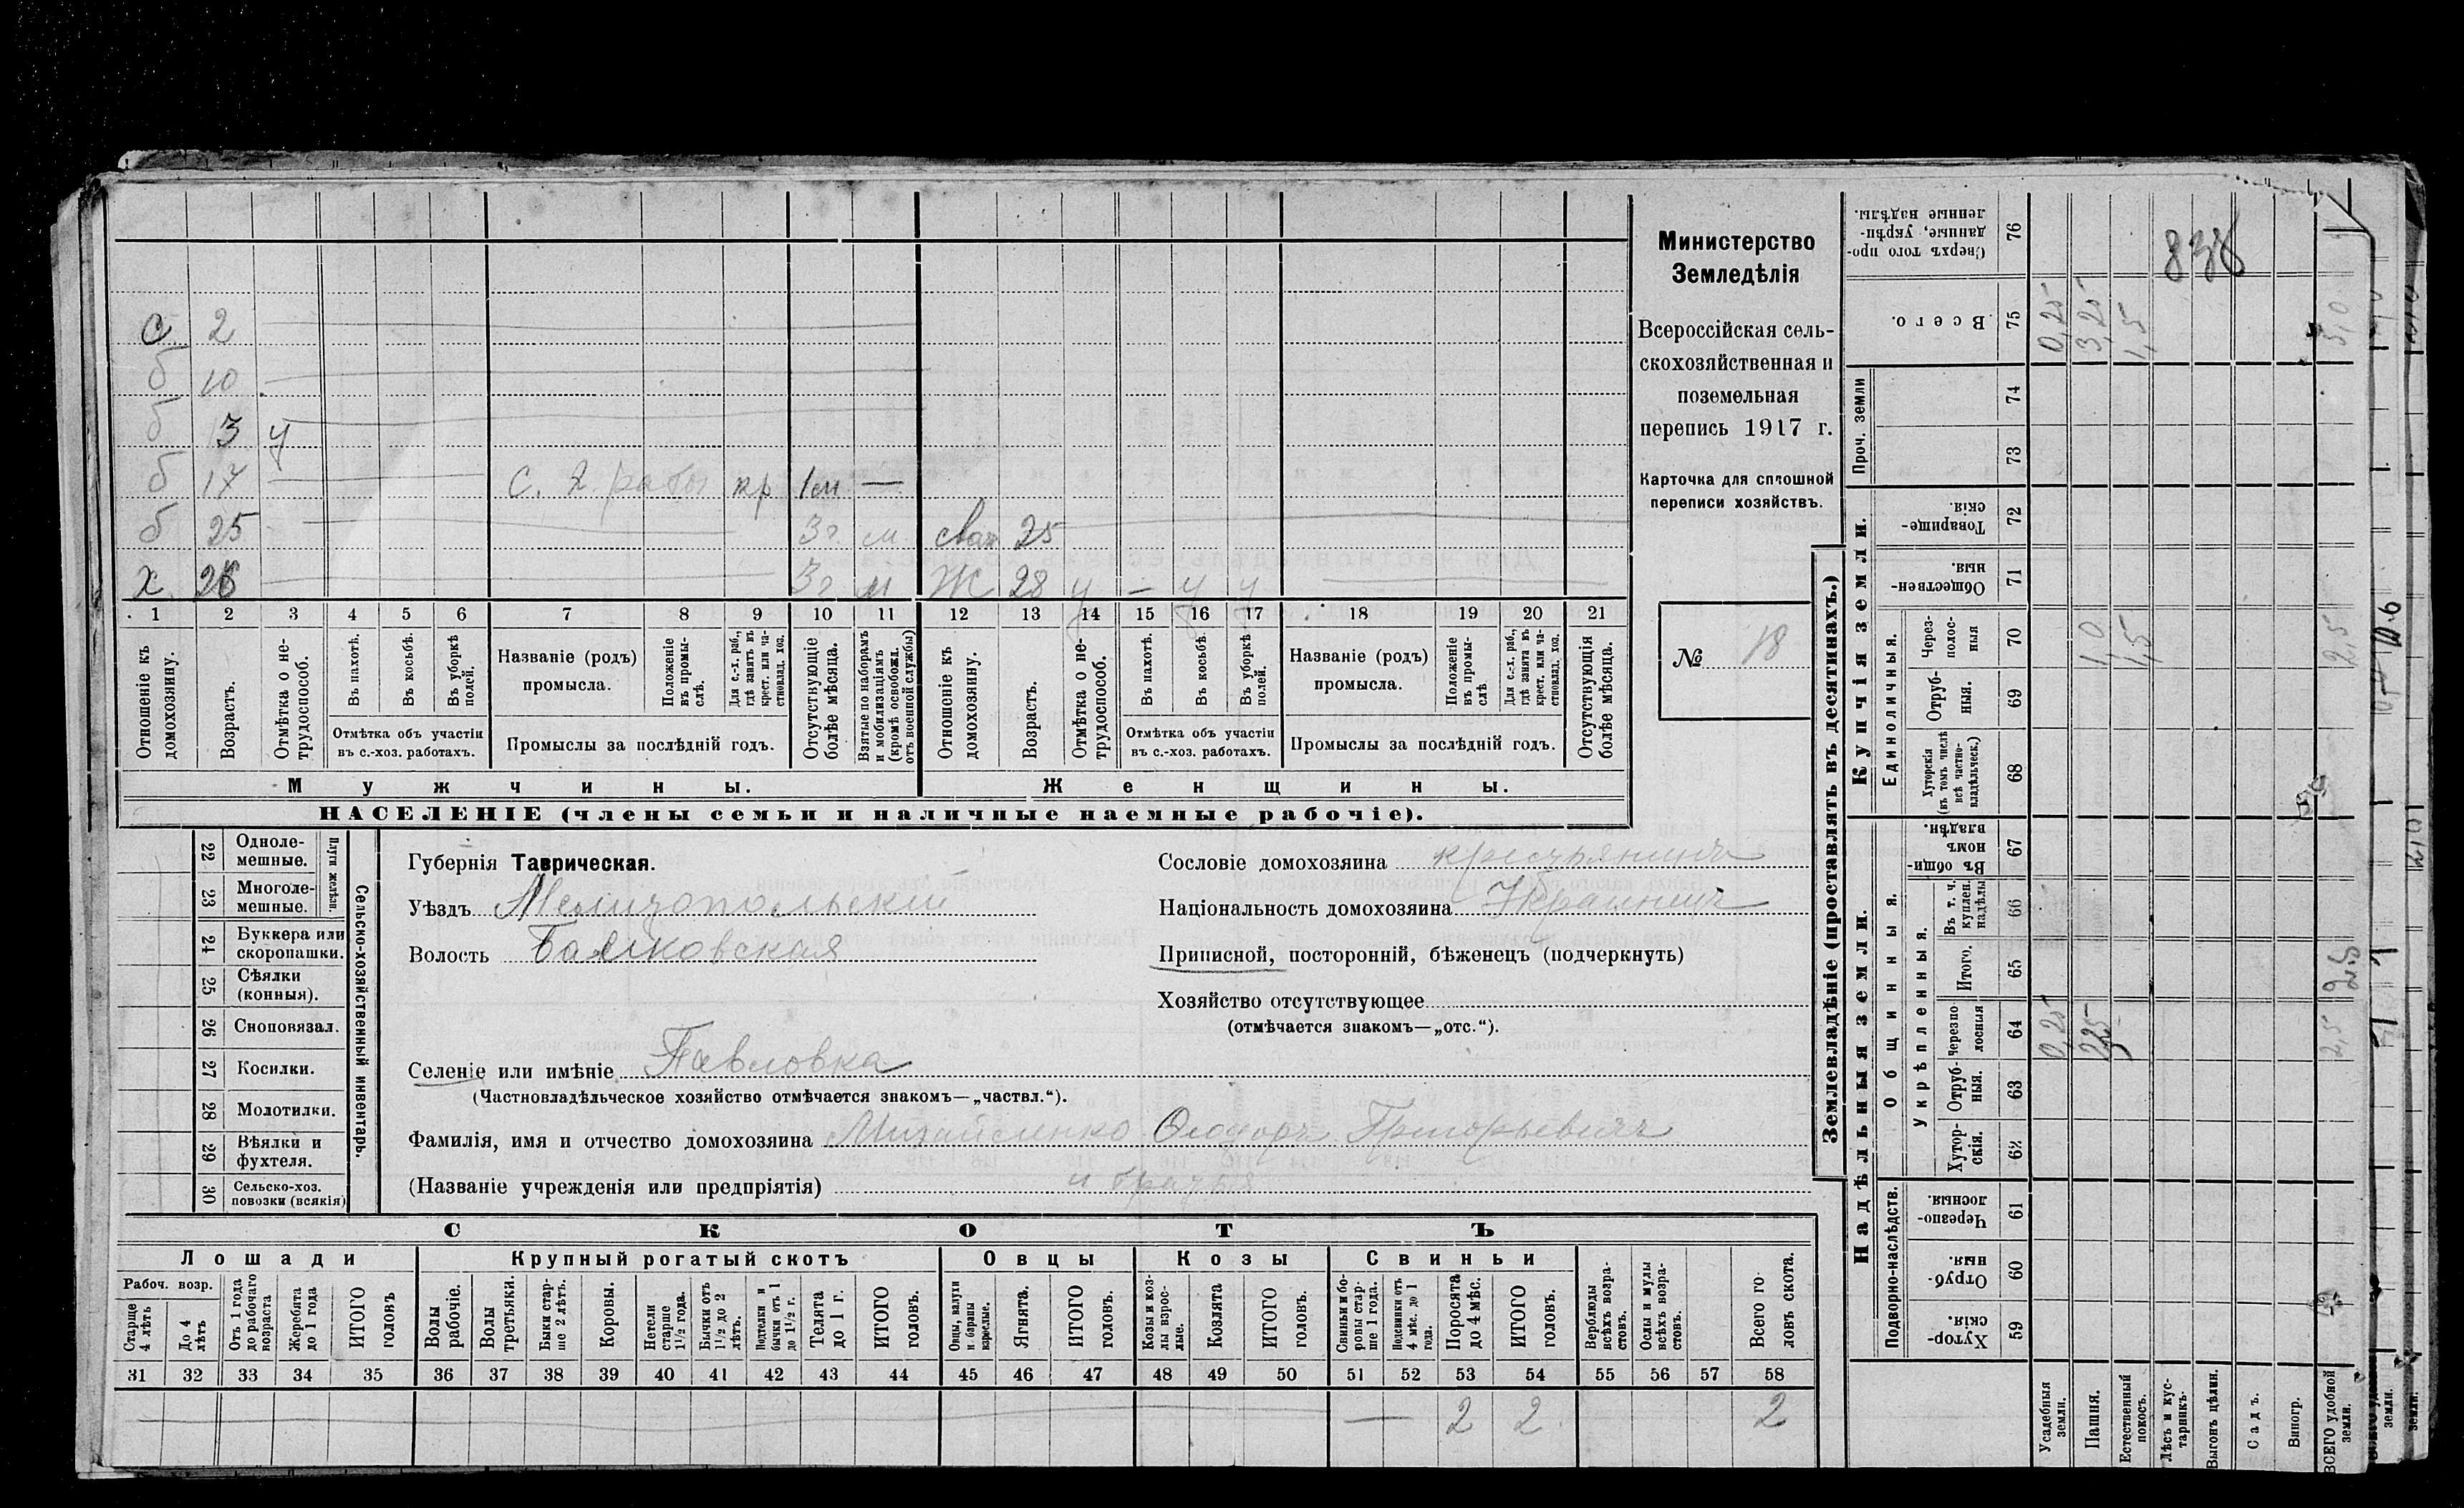 с 2
б 10
б 13 у
б 17 с. х. работы кр 1 м —
б 25 3 г. м. 25
х 26 3 г м Ж 28 у – у у
1 2 3 4 5 6 7 8 9 10 11 12 13 14 15 16 17 18 19 20 21
Отношеніе къ домохозяину.
Возрастъ.
Отмѣтка о нетрудоспособ.
Въ пахотѣ.
Въ косьбѣ.
Въ уборкѣ полей.
Отмѣтка объ участіи
въ с.-хоз. работахъ.
Названіе (родъ)
промысла.
Положеніе въ промыслѣ.
Для с.-х. раб., гдѣ занятъ въ крест. или частновлад. хоз.
Промыслы за послѣдній годъ.
Отсутствующіе болѣе мѣсяца.
Взятые по наборамъ и мобилизаціямъ (кромѣ освобожд. отъ военной службы)
Отношеніе къ домохозяину.
Возрастъ.
Отмѣтка о нетрудоспособ.
Въ пахотѣ.
Въ косьбѣ.
Въ уборкѣ полей.
Отмѣтка объ участіи
въ с.-хоз. работахъ.
Названіе (родъ)
промысла.
Положеніе въ промыслѣ
Для с.-х. раб., гдѣ занята въ крест. или частновлад. хоз.
Промыслы за послѣдній годъ.
Отсутствующія болѣе мѣсяца.
Мужчины. Женщины.
НАСЕЛЕНІЕ (члены семьи и наличные наемные рабочіе).
Министерство
Земледѣлія
Всероссійская сель-
скохозяйственная и
поземельная
перепись 1917 г.
Карточка для сплошной
переписи хозяйствъ.
№ 18
22 Одноле-
мешные.
23 Многоле-
мешные.
Плуги желѣзн.
24 Буккера или
скоропашки.
25 Сѣялки
(конныя).
26 Сноповязал.
27 Косилки.
28 Молотилки.
29 Вѣялки и
фухтеля.
30 Сельско-хоз.
повозки (всякія)
Сельско-хозяйственный инвентарь.
Губернія Таврическая.
Уѣздъ Мелитопольскій
Волость Балковская
Сословіе домохозяина крестьянинъ
Національность домохозяина Украинецъ
Приписной, посторонній, бѣженецъ (подчеркнуть)
Хозяйство отсутствующее
(отмѣчается знакомъ—„отс.“).
Селеніе или имѣніе Павловка
(Частновладѣльческое хозяйство отмѣчается знакомъ—„частвл.“).
Фамилія, имя и отчество домохозяина Михайленко Ѳеодоръ Григорьевичъ
(Названіе учрежденія или предпріятія) и братья
СКОТЪ
Лошади Крупный рогатый скотъ Овцы Козы Свиньи
Рабоч. возр.
Старше 4 лѣтъ
До 4 лѣтъ
Отъ 1 года до рабочаго возраста
Жеребята до 1 года
ИТОГО головъ
Волы рабочіе.
Волы третьяки.
Быки старше 2 лѣтъ.
Коровы.
Нетели старше 1½ года.
Бычки отъ 1½ до 2 лѣтъ.
Подтелки и бычки отъ 1 до 1½ г.
Телята до 1 г.
ИТОГО головъ.
Овцы, валухи и бараны взрослые.
Ягнята.
ИТОГО головъ.
Козы и козлы взрослые.
Козлята
ИТОГО головъ.
Свиньи и боровы старше 1 года.
Подсвинки отъ 4 мѣс. до 1 года.
Поросята до 4 мѣс.
ИТОГО головъ.
Верблюды всѣхъ возрастовъ.
Ослы и мулы всѣхъ возрастовъ.
Всего головъ скота.
31 32 33 34 35 36 37 38 39 40 41 42 43 44 45 46 47 48 49 50 51 52 53 54 55 56 57 58
— 2 2 2
Землевладѣніе (проставлять въ десятинахъ.)
Надѣльныя земли. Купчія земли. Проч. земли
Подворно-наслѣдств.
Общинныя.
Укрѣпленныя.
Единоличныя.
59 Хуторскія.
60 Отрубныя.
61 Черезполосныя.
62 Хуторскія.
63 Отрубныя.
64 Черезполосныя 0,25 2,25 2,5
65 Итого. 2,5
66 Въ т. ч. куплен. надѣлы
67 Въ общинномъ владѣн.
68 Хуторскія (въ томъ числѣ всѣ частновладѣльческ.)
69 Отрубныя.
70 Черезполосныя 1,0 1,5 2,5
71 Общественныя.
72 Товарищескія.
73
74
75 Всего. 0,25 3,25 1,5 5,0
76 Сверхъ того проданные, укрѣпленные надѣлы.
838
Усадебныя земли.
Пашня.
Естественный покосъ.
Лѣсъ и кустарникъ.
Выгонъ цѣлин.
Садъ.
Виногр.
ВСЕГО удобной земли.